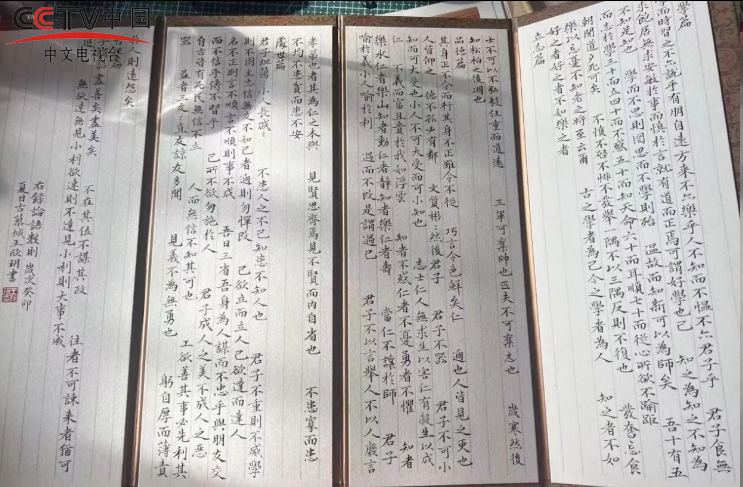 CCTV中国
中文电视台
學篇
學而時習之不亦說乎有朋自遠方来不亦樂乎人不知而不愠不亦君子乎 君子食無
求飽居無求安敏於事而慎於言就有道而正焉可謂好學也已 知之為知之不知為
不知是知也 學而不思則罔思而不學則殆 温故而知新可以為師矣 吾十有五
而志於學三十而立四十而不惑五十而知天命六十而耳順七十而從心所欲不踰距
朝聞道夕死可矣 不憤不啓不悱不發舉一隅不以三隅反則不復也 發奮忘食
樂以忘憂不知老之將至云爾 古之學者為己今之學者為人 知之者不如
好之者好之者不如樂之者
立志篇
士不可以不弘毅任重而道遠 三軍可奪帥也匹夫不可奪志也 歲寒然後
知松柏之後凋也
品德篇
其身正不令而行其身不正雖令不從 巧言令色鮮矣仁 過也人皆見之更也
人皆仰之 德不孤必有鄰 文質彬彬然後君子 君子不器 君子不可小
知而可大受也小人不可大受而可小知也 志士仁人無求生以害仁有殺生以成
仁 不義而富且貴於我如浮雲 知者不惑仁者不憂勇者不懼 知者
樂水仁者樂山知者動仁者靜知者樂仁者壽 當仁不讓於師 君子
喻於義小人喻於利 過而不改是謂過已 君子不以言舉人不以人廢言
孝弟也者其為仁之本與 見賢思齊焉見不賢而内自省也 不患寡而患
不均不患貧而患不安
處世篇
君子坦蕩蕩小人長戚戚 不患人之不己知患不知人也 君子不重則不威學
則不固主忠信無友不如己者過則勿憚改 己欲立而立人己欲達而達人
名不正則言不順言不順則事不成 吾日三省吾身為人謀而不忠乎與朋友交
而不信乎傳不習乎 己所不欲勿施於人 君子成人之美不成人之惡
自古皆有死民無信不立 人而無信不知其可也 工欲善其事必先利其
器 益者三友友直友諒友多聞 見義不為無勇也 躬自厚而薄責
於人則遠怨矣
篇
盡善矣盡美矣 不在其位不謀其政 往者不可諫来者猶可
追 無欲速無見小利欲速則不達見小利則大事不成
右錄論語數則歲次癸卯
夏日古蔡城王欣玥書